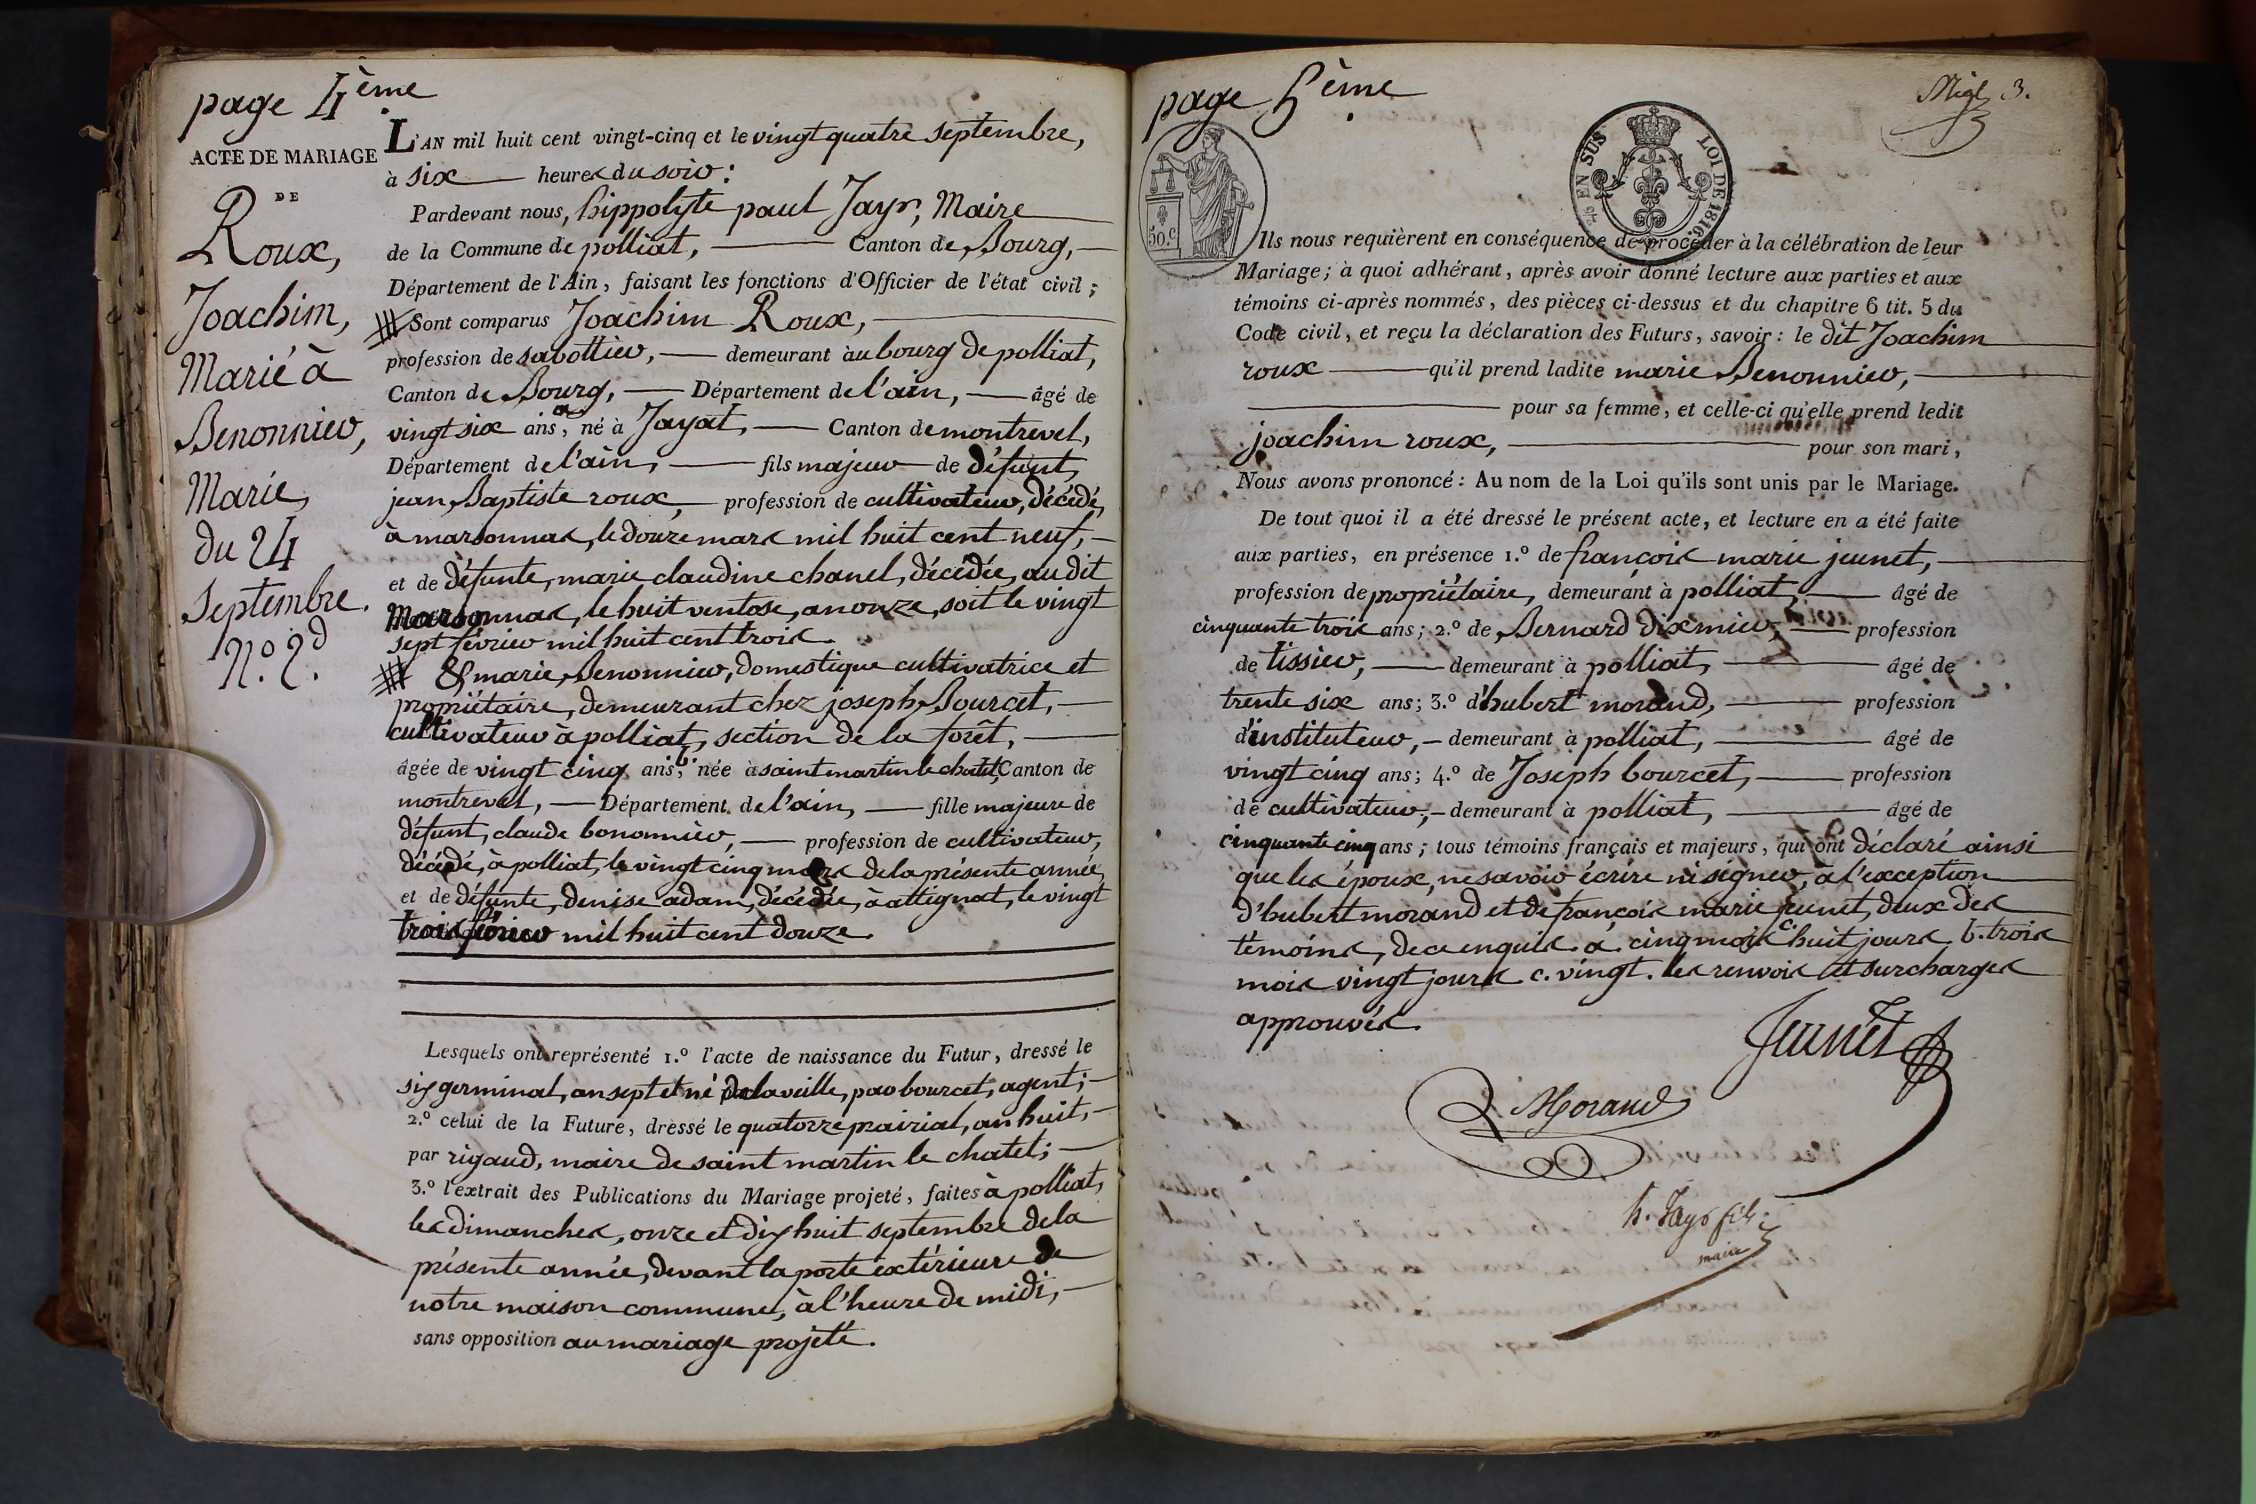 page 4ème
ACTE DE MARIAGE
DE
Roux,
Joachim,
Marié à
Benonnier,
Marie,
du 24
Septembre.
N.o 2d.
L'AN mil huit cent vingt-cinq et le vingt quatre septembre,
à six heures du soir:
Pardevant nous, hippolyte paul Jayr, Maire
de la Commune de polliat, Canton de Bourg,
Département de l'Ain, faisant les fonctions d'Officier de l'état civil;
Sont comparus Joachim Roux,
profession de sabottier, demeurant àu bourg de polliat,
Canton de Bourg, Département de l'ain, âgé de
vingt six ans a, né à Jayat, Canton de montrevel,
Département de l'ain, fils majeur de défunt,
jean Baptiste roux, profession de cultivateur, décédé,
à marsonnas, le douze mars mil huit cent neuf,
et de défunte, marie claudine chanel, décédée, au dit
Marsonnas, le huit ventose, an onze, soit le vingt
sept février mil huit cent trois.
Et marie Benonnier, domestique cultivatrice et
propriétaire, demeurant chez joseph Bourcet,
cultivateur à polliat, section de la forêt,
âgée de vingt cinq ans b, née à saint martin le chatel, Canton de
montrevel, Département de l'ain, fille majeure de
défunt, claude bonnonnier, profession de cultivateur,
décédé, à polliat, le vingt cinq mars de la présente année,
et de défunte, denise adam, décédée, à attignat, le vingt
trois février mil huit cent douze.
Lesquels ont représenté 1.o l'acte de naissance du Futur, dressé le
six germinal, an sept et né de la veille, par bourcet, agent;
2.o celui de la Future, dressé le quatorze prairial, an huit,
par rigaud, maire de saint martin le chatel;
3.o l'extrait des Publications du Mariage projeté, faites à polliat,
les dimanches, onze et dix huit septembre de la
présente année, devant la porte extérieure de
notre maison commune, à l'heure de midi,
sans opposition au mariage projeté.
page 5ème
3.
EN SUS
LOI DE 1816.
50.c
Ils nous requièrent en conséquence de procéder à la célébration de leur
Mariage; à quoi adhérant, après avoir donné lecture aux parties et aux
témoins ci-après nommés, des pièces ci-dessus et du chapitre 6 tit. 5 du
Code civil, et reçu la déclaration des Futurs, savoir: le dit Joachim
roux qu'il prend ladite marie Benonnier,
pour sa femme, et celle-ci qu'elle prend ledit
joachim roux, pour son mari,
Nous avons prononcé: Au nom de la Loi qu'ils sont unis par le Mariage.
De tout quoi il a été dressé le présent acte, et lecture en a été faite
aux parties, en présence 1.o de françois marie jeunet,
profession de propriétaire, demeurant à polliat, âgé de
cinquante trois ans; 2.o de Bernard dixmier, profession
de tissier, demeurant à polliat, âgé de
trente six ans; 3.o d'hubert morand, profession
d'instituteur, demeurant à polliat, âgé de
vingt cinq ans; 4.o de Joseph bourcet, profession
de cultivateur, demeurant à polliat, âgé de
cinquante cinq ans; tous témoins français et majeurs, qui ont déclaré ainsi
que les époux, ne savoir écrire ni signer, à l'exception
d'hubert morand et de françois marie jeunet, deux des
témoins, de ce enquis. a. cinq mois c. huit jours b. trois
mois vingt jours c. vingt. les renvois et surcharges
approuvés.
Jeunet
Morand
h. Jayr fils
maire